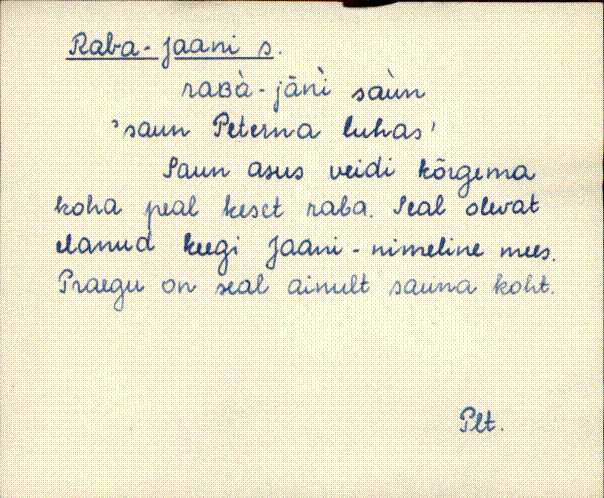 Raba-Jaani s.
raʙà-jāǹì saùn
'saun Peterna luhas'
Saun asus veidi kõrgema
koha peal keset raba. Seal olevat
elanud keegi Jaani-nimeline mees.
Praegu on seal ainult sauna koht.
Plt.